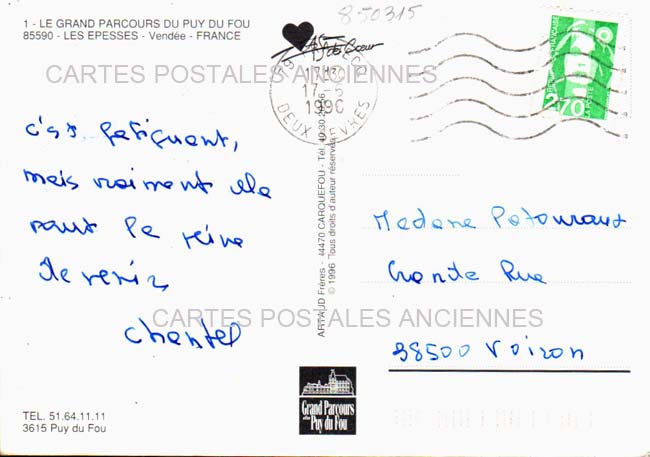 1 - LE GRAND PARCOURS DU PUY DU FOU
85590 - LES EPESSES - Vendée - FRANCE
850315
As de Cœur
17-5
1996
DEUX SEVRES
2,70
CARTES POSTALES ANCIENNES
c'est fatiguant,
mais vraiment ela
vaut la peine
de venir
Chantal
ARTAUD Frères - 44470 CARQUEFOU - Tél. 40.30
© 1996 Tous droits d'auteur réservés
Madame
Rue
38500 Voiron
CARTES POSTALES ANCIENNES
Grand Parcours
Puy du Fou
TEL. 51.64.11.11
3615 Puy du Fou